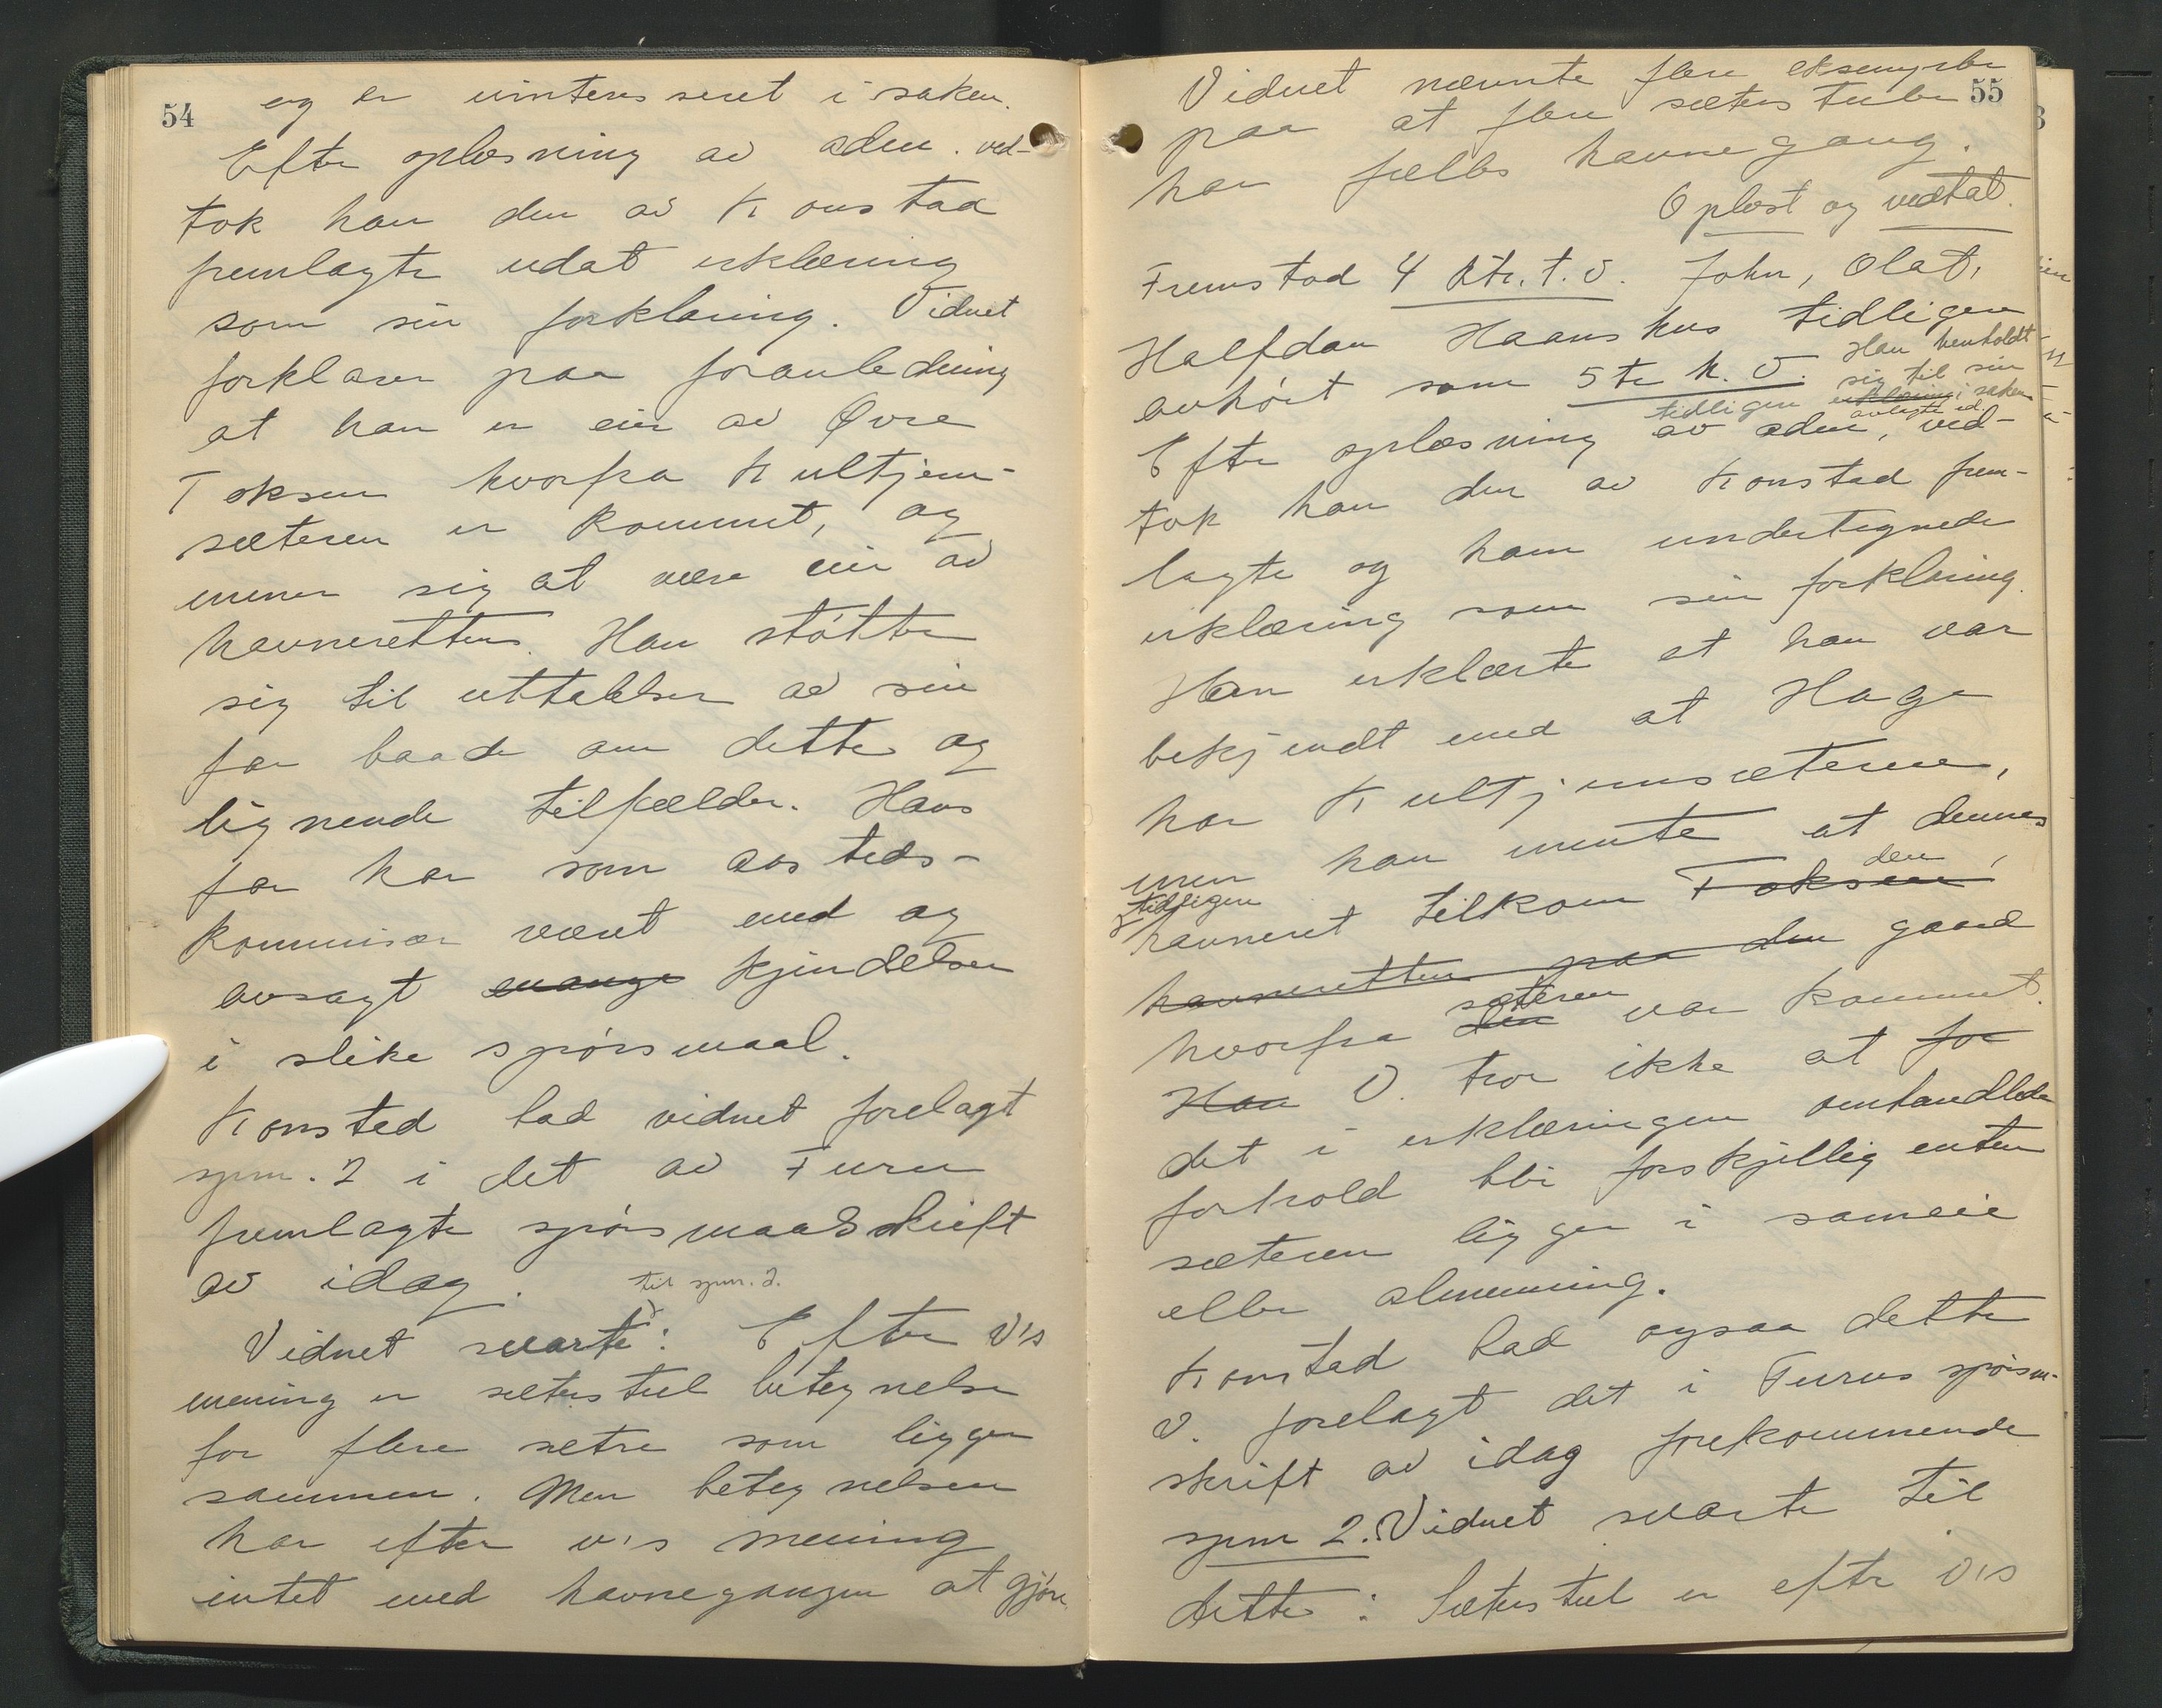 54
og er uinteresseret i saken.
Efter oplæsning av eden. ved-
tok han den av Konstad
fremlagte udat erklæring
som sin forklaring. Vidnet
forklarer paa foranledning
at han er eier av Øvre
Toksen hvorfra Kultjern-
sæteren er kommet, og
mener sig at være eier av
havneretten. Han støtter
sig til uttalelser av sin
far baade om dette og
lignende tilfælder. Hans
far har som aasteds-
kommisær været med og
avsagt mange kjendelser
i slike spørsmaal.
Konstad bad vidnet forelagt
spm. 2 i det av Furu
fremlagte spørsmaalsskrift
av idag.
til spm. 2.
Vidnet svarte: Efter v's
mening er sæterstul betegnelse
for flere sætre som ligger
sammen. Men betegnelsen
har efter v's mening
intet med havnegangen at gjøre
55
Vidnet nævnte flere eksempler
paa at flere sæterstuler
har fælles havnegang.
Oplæst og vedtat.
Fremstod 4 Ktr. t. v. John, Olat,
Halfdan Haanshus tidligere
avhørt som 5te h. v. Han henholdt
sig til sin
tidligere erklæring i saken
avlagte ed.
Efter oplæsning av eden, ved-
tok han den av Konstad frem-
lagte og ham undertegnede
erklæring som sin forklaring.
Han erklærte at han var
bekjendt med at Hage
har Kultjernsæteren,
men han mente at dennes
tidligere den
havneret tilkom Toksen,
havneretten paa den gaard
sæteren
hvorfra den var kommet.
Han V. tror ikke at for
det i erklæringen omhandlede
forhold blir forskjellig enten
sæteren ligger i sameie
eller almenning.
Konstad bad ogsaa dette
v. forelagt det i Furus spørsm.-
skrift av idag forekommende
spm 2. Vidnet svarte til
dette: Sæterstul er efter v's